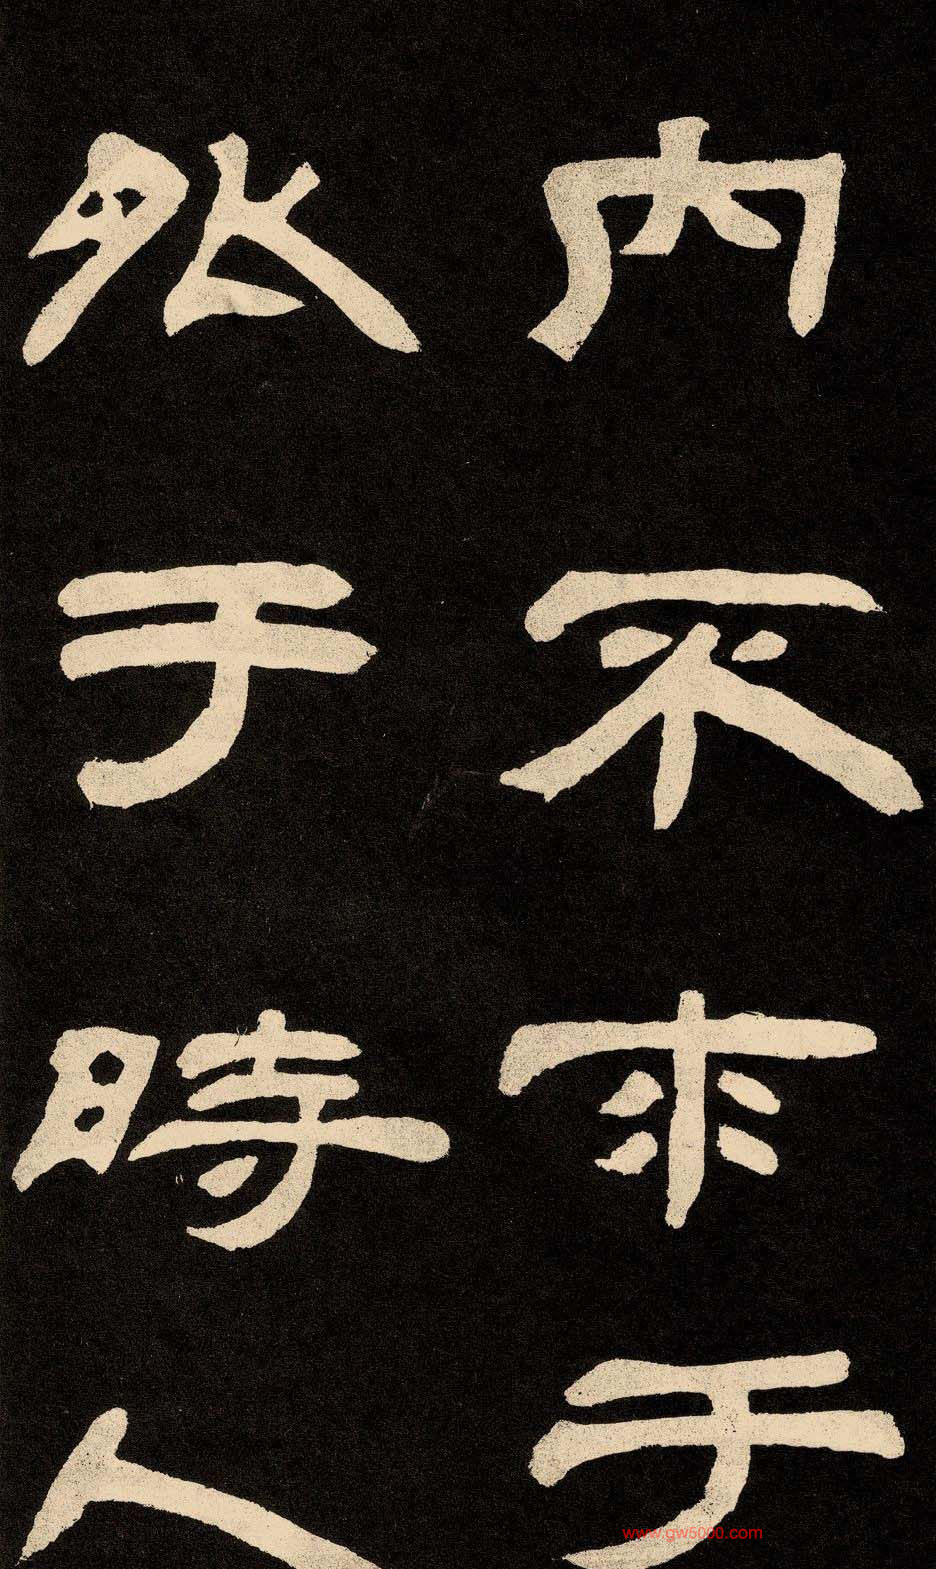 内不求于
于時人
www.gw5000.com